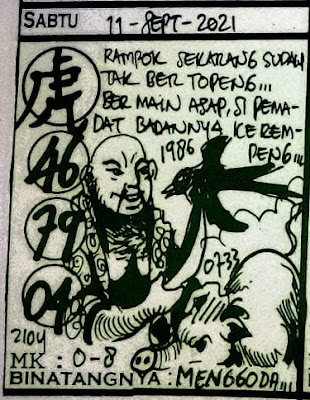 SABTU 11-SEPT-2021
虎
RAMPOK SEKARANG SUDAH
TAK BER TOPENG...
BER MAIN ASAP, SI PEMA-
DAT BADANNYA KEREM-
PENG...
1986
46
79
04
0733
2104
MK : 0-8
BINATANGNYA : MENGGODA...